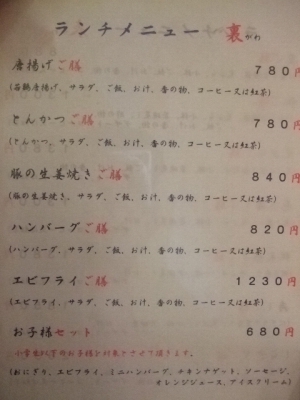 ランチメニュー 裏がわ
唐揚げご膳 780円
(若鶏唐揚げ、サラダ、ご飯、お汁、香の物、コーヒー又は紅茶)
とんかつご膳 780円
(とんかつ、サラダ、ご飯、お汁、香の物、コーヒー又は紅茶)
豚の生姜焼きご膳 840円
(豚の生姜焼き、サラダ、ご飯、お汁、香の物、コーヒー又は紅茶)
ハンバーグご膳 820円
(ハンバーグ、サラダ、ご飯、お汁、香の物、コーヒー又は紅茶)
エビフライご膳 1230円
(エビフライ、サラダ、ご飯、お汁、香の物、コーヒー又は紅茶)
お子様セット 680円
小学生以下のお子様を対象とさせて頂きます。
(おにぎり、エビフライ、ミニハンバーグ、チキンナゲット、ソーセージ、
オレンジジュース、アイスクリーム)